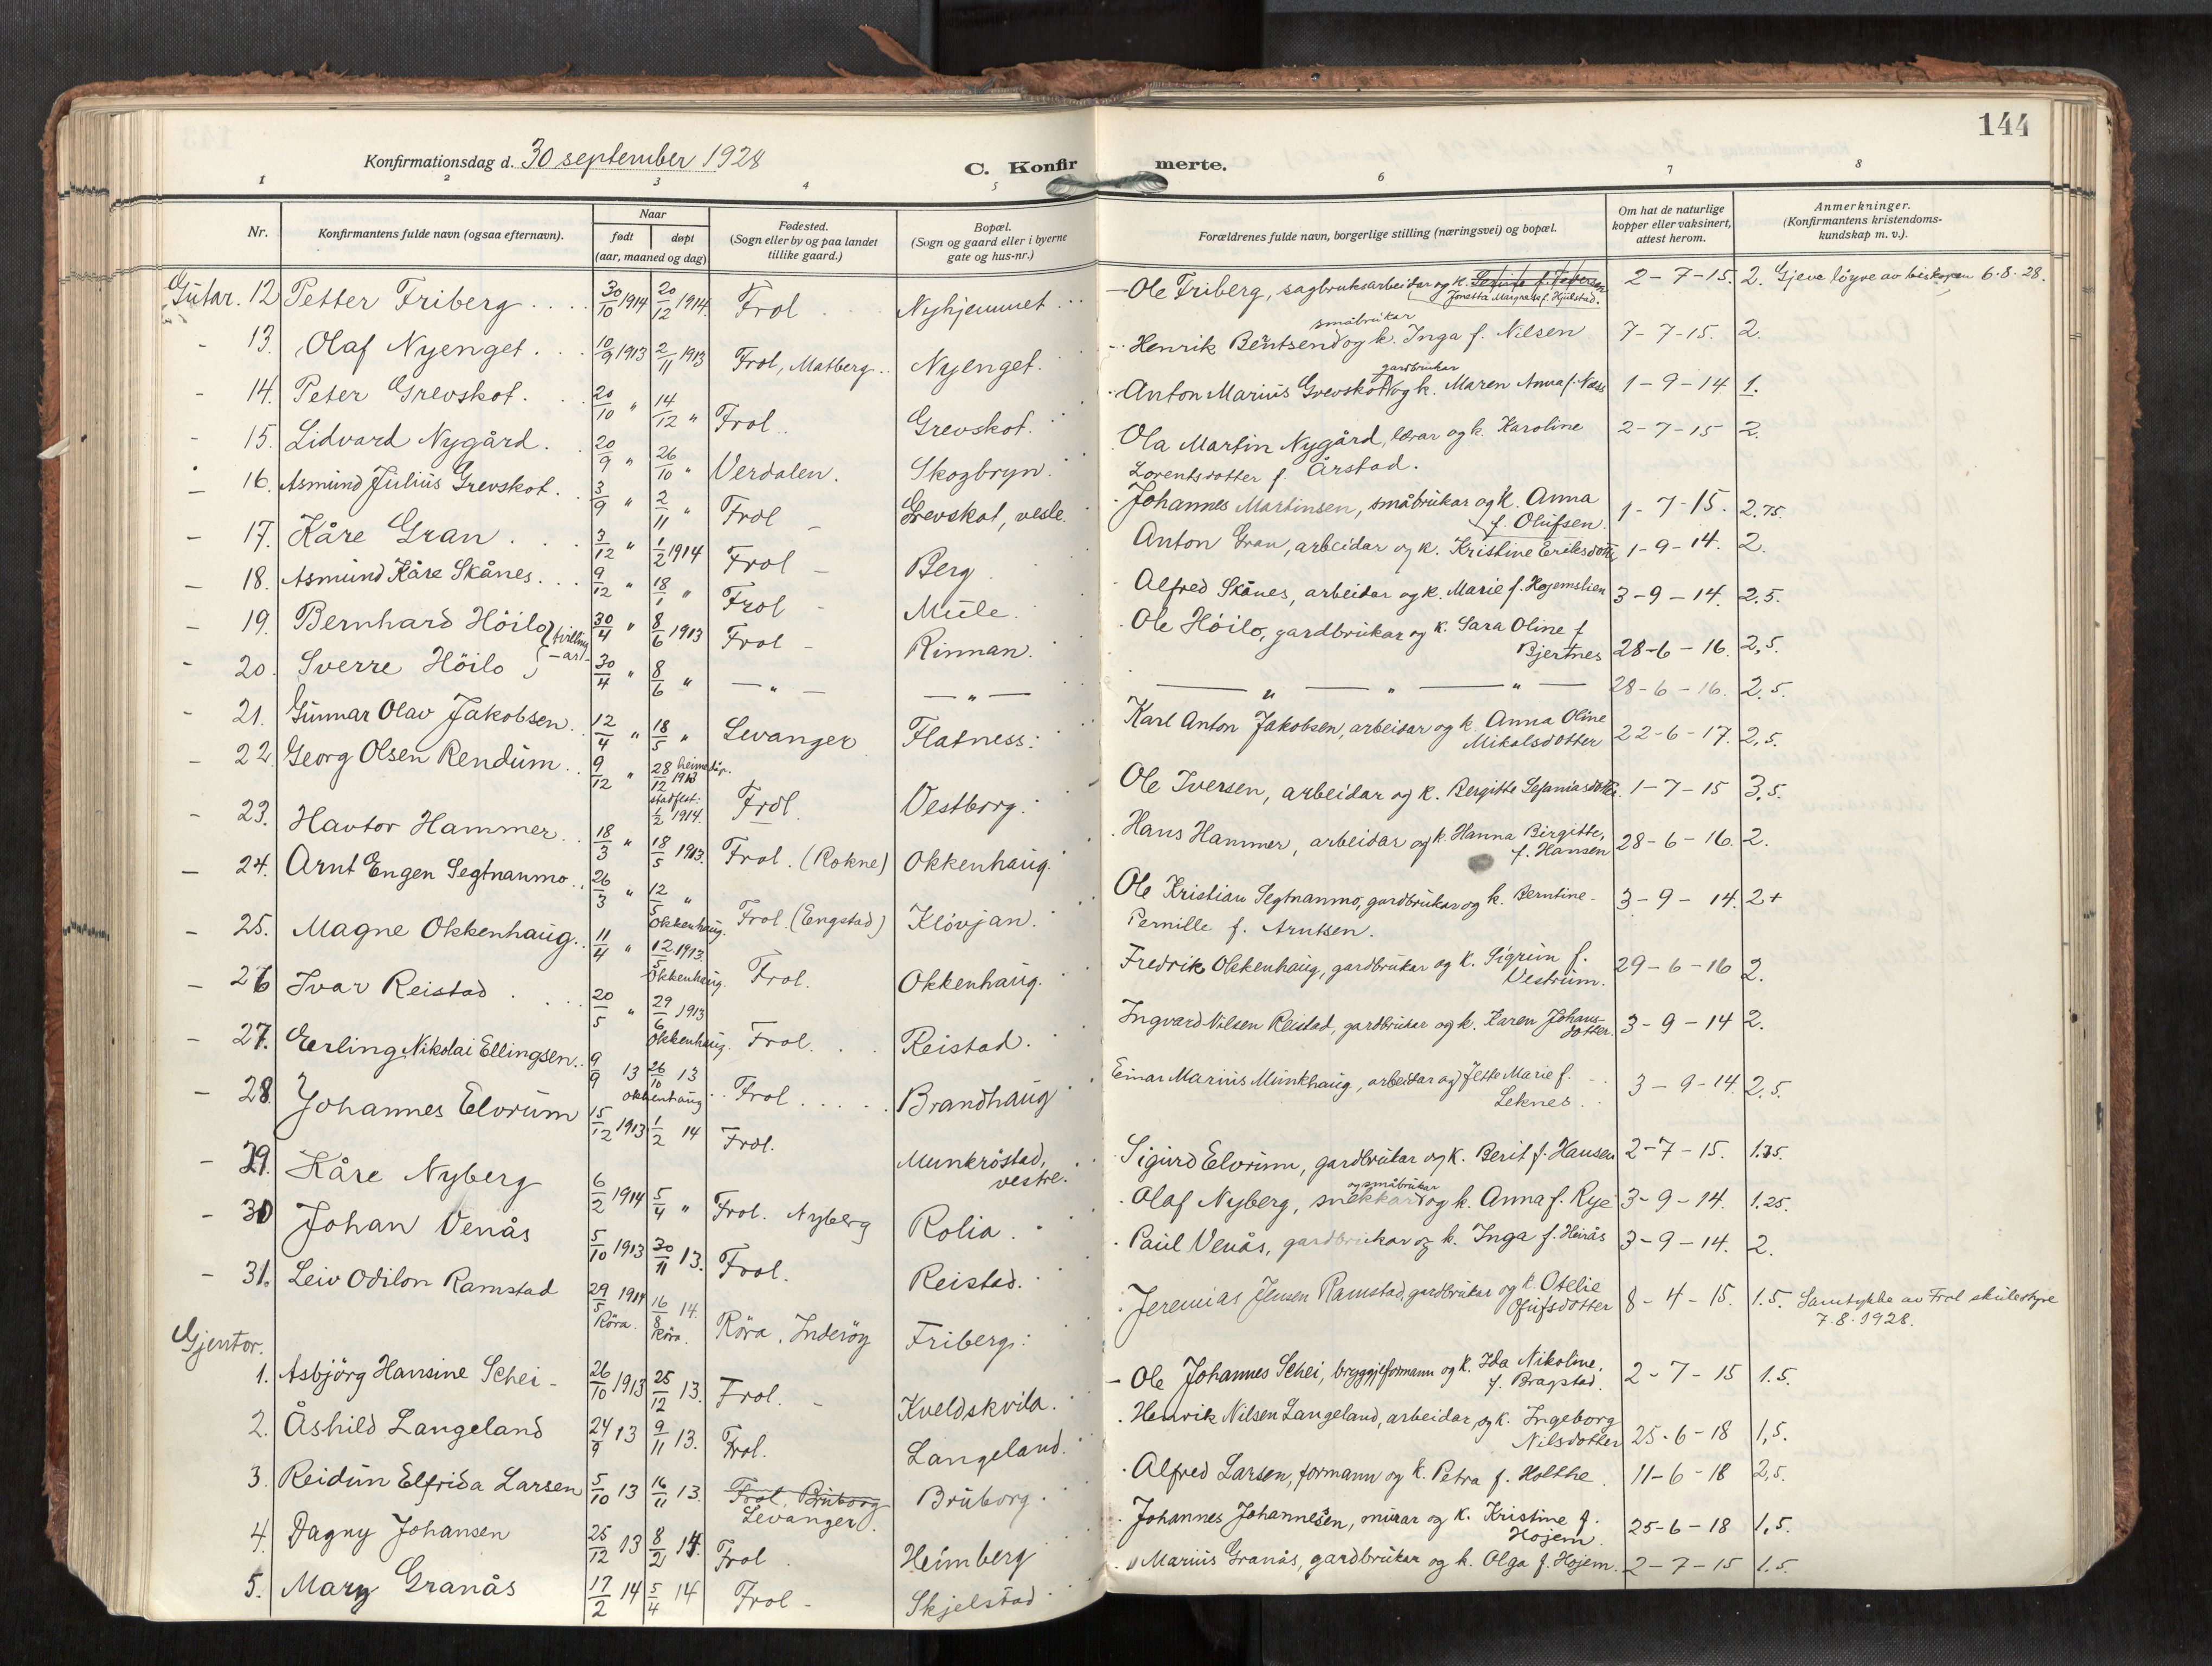 144
Konfirmationsdag d. 30 september 1928
C. Konfirmerte.
1 2 3 4 5 6 7 8
Nr.
Konfirmantens fulde navn (ogsaa efternavn).
Naar
født
døpt
(aar, maaned og dag)
Fødested.
(Sogn eller by og paa landet
tillike gaard.)
Bopæl.
(Sogn og gaard eller i byerne
gate og hus-nr.)
Forældrenes fulde navn, borgerlige stilling (næringsvei) og bopæl.
Om hat de naturlige
kopper eller vaksinert,
attest herom.
Anmerkninger.
(Konfirmantens kristendoms-
kundskap m. v.).
Gutar. 12 Petter Friberg 30/10 1914 20/12 1914. Frol Nyhjemmet Ole Friberg, sagbruksarbeidar og k. Jonetta Margreta f. Hjulstad. 2-7-15. 2. Gjeve løyve av biskopen 6.8.28.
13. Olaf Nyenget. 10/9 1913 2/11 1913 Frol, Matberg. Nyenget. Henrik Bentsen småbrukar og k. Inga f. Nilsen 7-7-15. 2.
14. Peter Grevskot. 20/10 " 14/12 " Frol. Grevskot. Anton Marius Grevskott gardbrukar og k. Maren Anna f. Næss 1-9-14 1.
15. Lidvard Nygård. 20/9 " 26/10 " Verdalen. Skogbryn. Ola Martin Nygård, lærar og k. Karoline
Lorentsdotter f. Årstad. 2-7-15 2.
16. Asmund Julius Grevskot. 3/9 " 2/11 " Frol Grevskot, vesle. Johannes Martinsen, småbrukar og k. Anna
f. Olufsen. 1-7-15. 2.75.
17. Kåre Gran 3/12 " 1/2 1914 Frol Berg Anton Gran, arbeidar og k. Kristine Eriksdotter 1-9-14. 2.
18. Asmund Kåre Skånes. 9/12 " 18/1 " Frol Mule. Alfred Skånes, arbeidar og k. Marie f. Hojemslien 3-9-14. 2.5.
19. Bernhard Höilo } tvilling-ar 30/4 " 8/6 1913 Frol Rinnan. Ole Höilo, gardbrukar og k. Sara Oline f.
Bjertnes 28-6-16. 2,5.
20. Sverre Höilo 30/4 " 8/6 " — " — — " — — " — " — " — 28-6-16. 2.5.
21. Gunnar Olav Jakobsen. 12/4 " 18/5 " Levanger Flatness. Karl Anton Jakobsen, arbeidar og k. Anna Oline
Mikalsdotter 22-6-17. 2,5.
22. Georg Olsen Rendum. 9/12 " 28/12 1913 heimedøp. stadfest: 1/2 1914. Frol. Vestborg. Ole Iversen, arbeidar og k. Bergitte 1-7-15 3,5.
23. Havtor Hammer. 18/3 " 18/5 1913. Frol. (Rokne) Okkenhaug. Hans Hammer, arbeidar og k. Hanna Birgitte,
f. Hansen 28-6-16. 2.
24. Arnt Engen Segtnanmo. 26/3 " 12/5 " Okkenhaug. Frol. (Engstad) Klövjan. Ole Kristian Segtnanmo, gardbrukar og k. Berntine
Pernille f. Arntsen. 3-9-14. 2+
25. Magne Okkenhaug. 11/4 " 12/5 1913. Okkenhaug. Frol. Okkenhaug. Fredrik Okkenhaug, gardbrukar og k. Sigrun f.
Vestrum. 29-6-16 2.
26 Ivar Reistad 20/5 " 29/6 1913 Okkenhaug. Frol. Reistad. Ingvard Nilsen Reistad, gardbrukar og k. Karen Johans-
dotter. 3-9-14 2.
27. Erling Nikolai Ellingsen. 9/9 13 26/10 13 Okkenhaug Frol. Brandhaug Einar Marius Munkhaug, arbeidar og Jette Marie f.
Leknes. 3-9-14. 2.5.
28. Johannes Elvrum 15/12 1913 1/2 14 Frol. Munkröstad, vestre. Sigurd Elvrum, gardbrukar og k. Berit f. Hansen 2-7-15. 1.75.
29. Kåre Nyberg 6/2 1914 5/4 " Frol. Nyberg Rolia. Olaf Nyberg, snekkar og småbrukar og k. Anna f. Rye 3-9-14. 1.25.
30 Johan Venås 5/10 1913 30/11 13. Frol. Reistad. Paul Venås, gardbrukar og k. Inga f. Heirås 3-9-14. 2.
31. Leiv Odilon Ramstad 29/5 1914 Röra. 16/8 14. Röra. Röra, Inderöy Friberg. Jeremias Jensen Ramstad, gardbrukar og k. Otelie
Olufsdotter 8-4-15. 1.5. Samtykke av Frol skulestyre
7.8.1928.
Gjentor.
1. Asbjörg Hansine Schei 26/10 1913 25/12 13. Frol. Kveldskvila. Ole Johannes Schei, bryggjeformann og k. Ida Nikoline,
f. Bragstad. 2-7-15 1.5.
2. Åshild Langeland 24/9 13 9/11 13. Frol. Langeland. Henrik Nilsen Langeland, arbeidar, og k. Ingeborg
Nilsdotter 25-6-18 1,5.
3. Reidun Elfrida Larsen 5/10 13 16/11 13. Frol, Bruborg Levanger. Bruborg. Alfred Larsen, formann og k. Petra f. Holthe. 11-6-18 2,5.
4. Dagny Johansen 25/12 13 8/2 14. Frol Heimberg Johannes Johannesen, murar og k. Kristine f.
Hojem. 25-6-18 1,5.
5. Mary Granås 17/2 14 5/4 14 Frol Skjelstad Marius Granås, gardbrukar og k. Olga f. Hojem. 2-7-15 1.5.